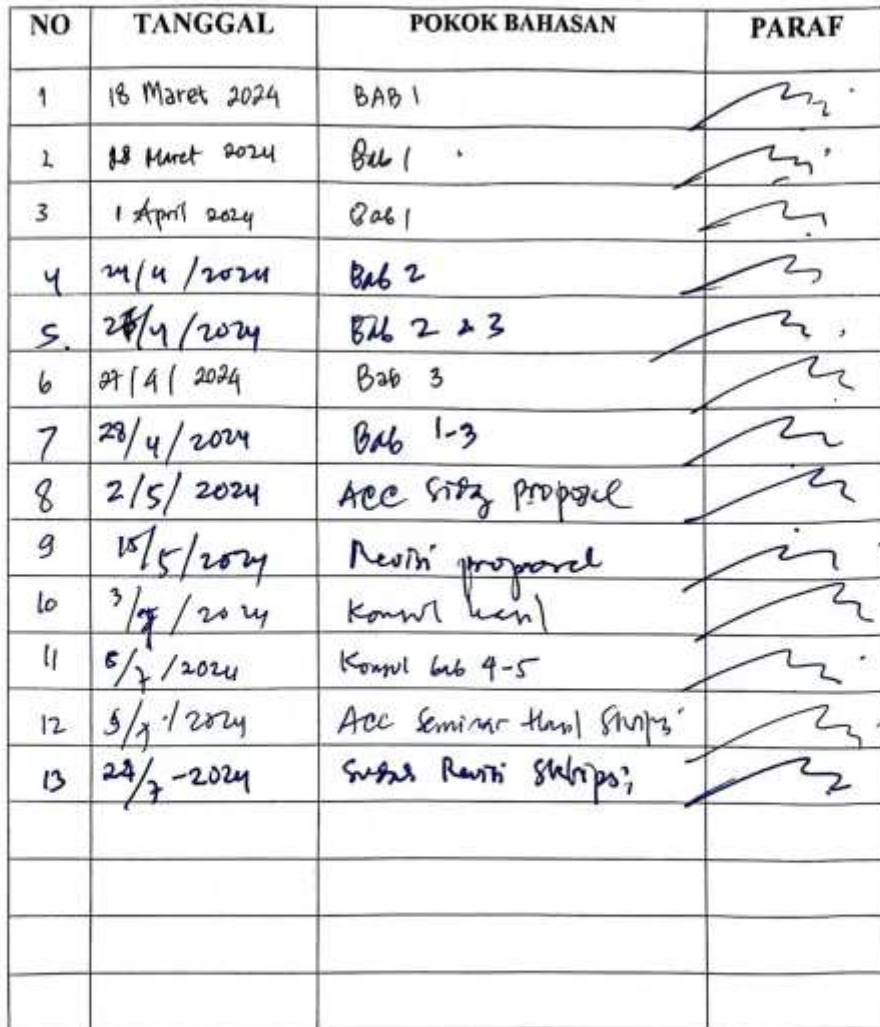 NO TANGGAL POKOK BAHASAN PARAF
1 18 Maret 2024 BAB 1
2 28 Maret 2024 Bab 1
3 1 April 2024 Bab 1
4 24/4/2024 Bab 2
5. /4/2024 Bab 2 & 3
6 27/4/2024 Bab 3
7 28/4/2024 Bab 1-3
8 2/5/2024 ACC proposal
9 15/5/2024 Revisi proposal
10 3/7/2024 Konsul hasil
11 /7/2024 Konsul bab 4-5
12 /7/2024 Acc Seminar Hasil Skripsi
13 /7-2024 Revisi Skripsi